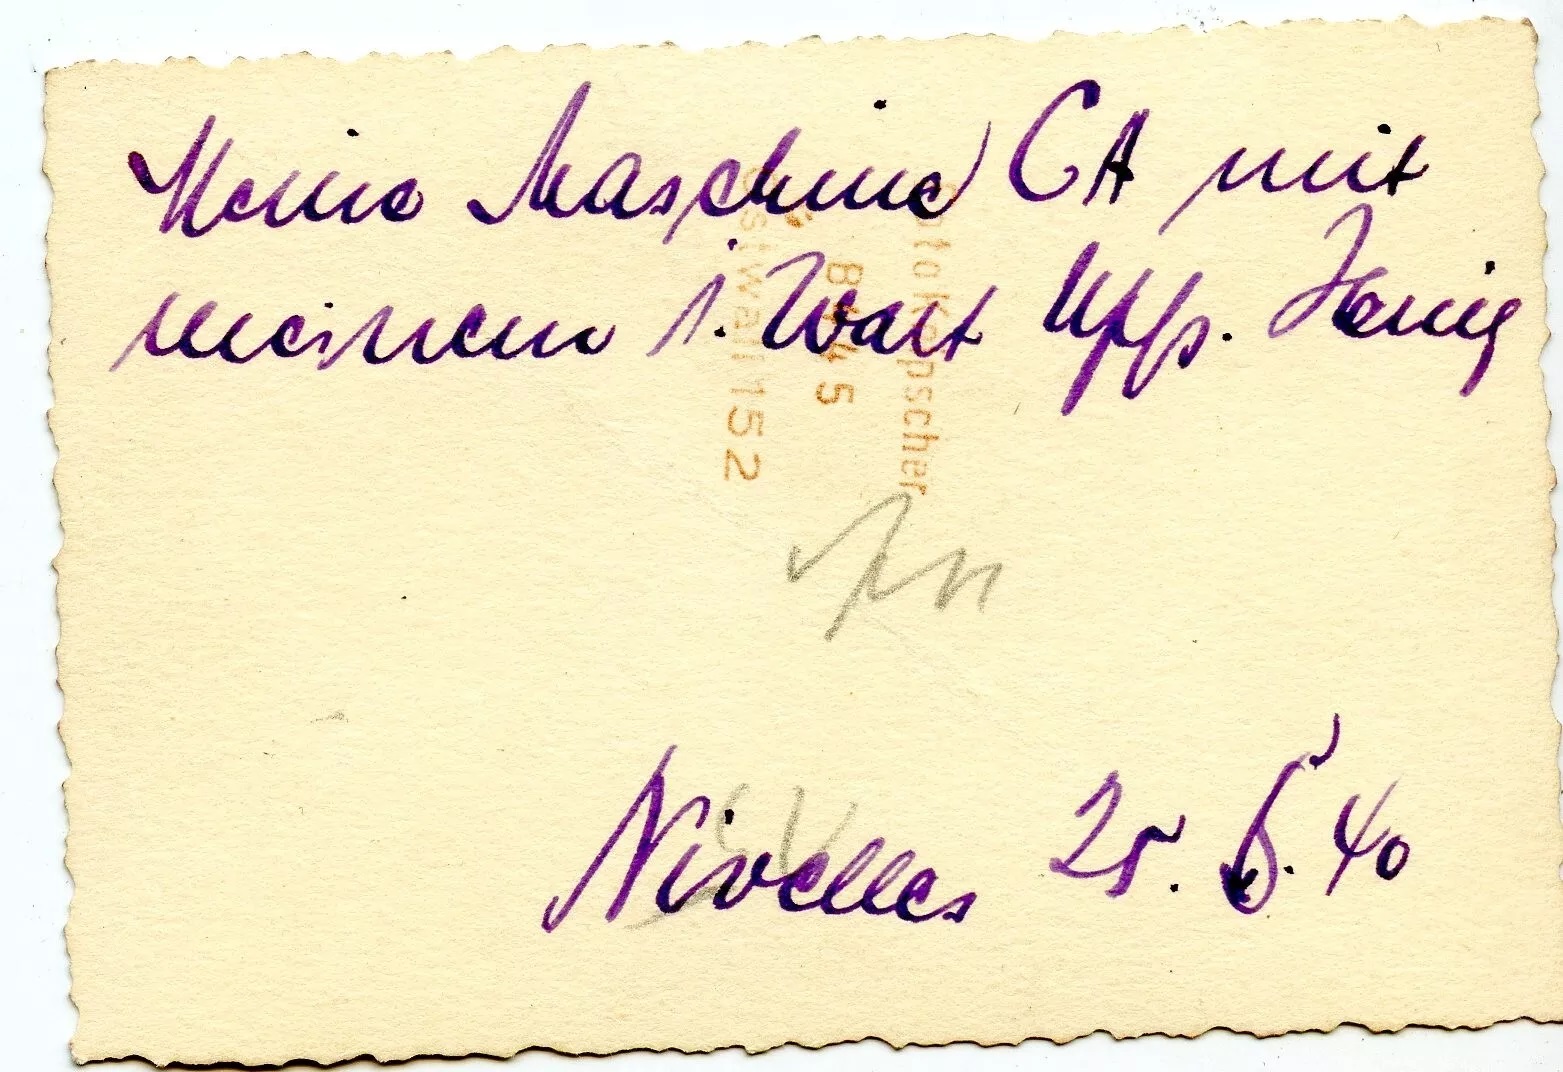 Meine Maschine CA mit
meinem 1. Wart Uffz. Honig
Nivelles 25. 5. 40
Foto Kepscher
8445
Ostwall 152